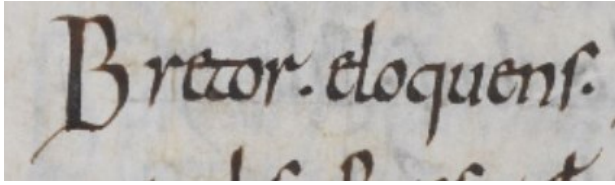 Bretor. eloquens.